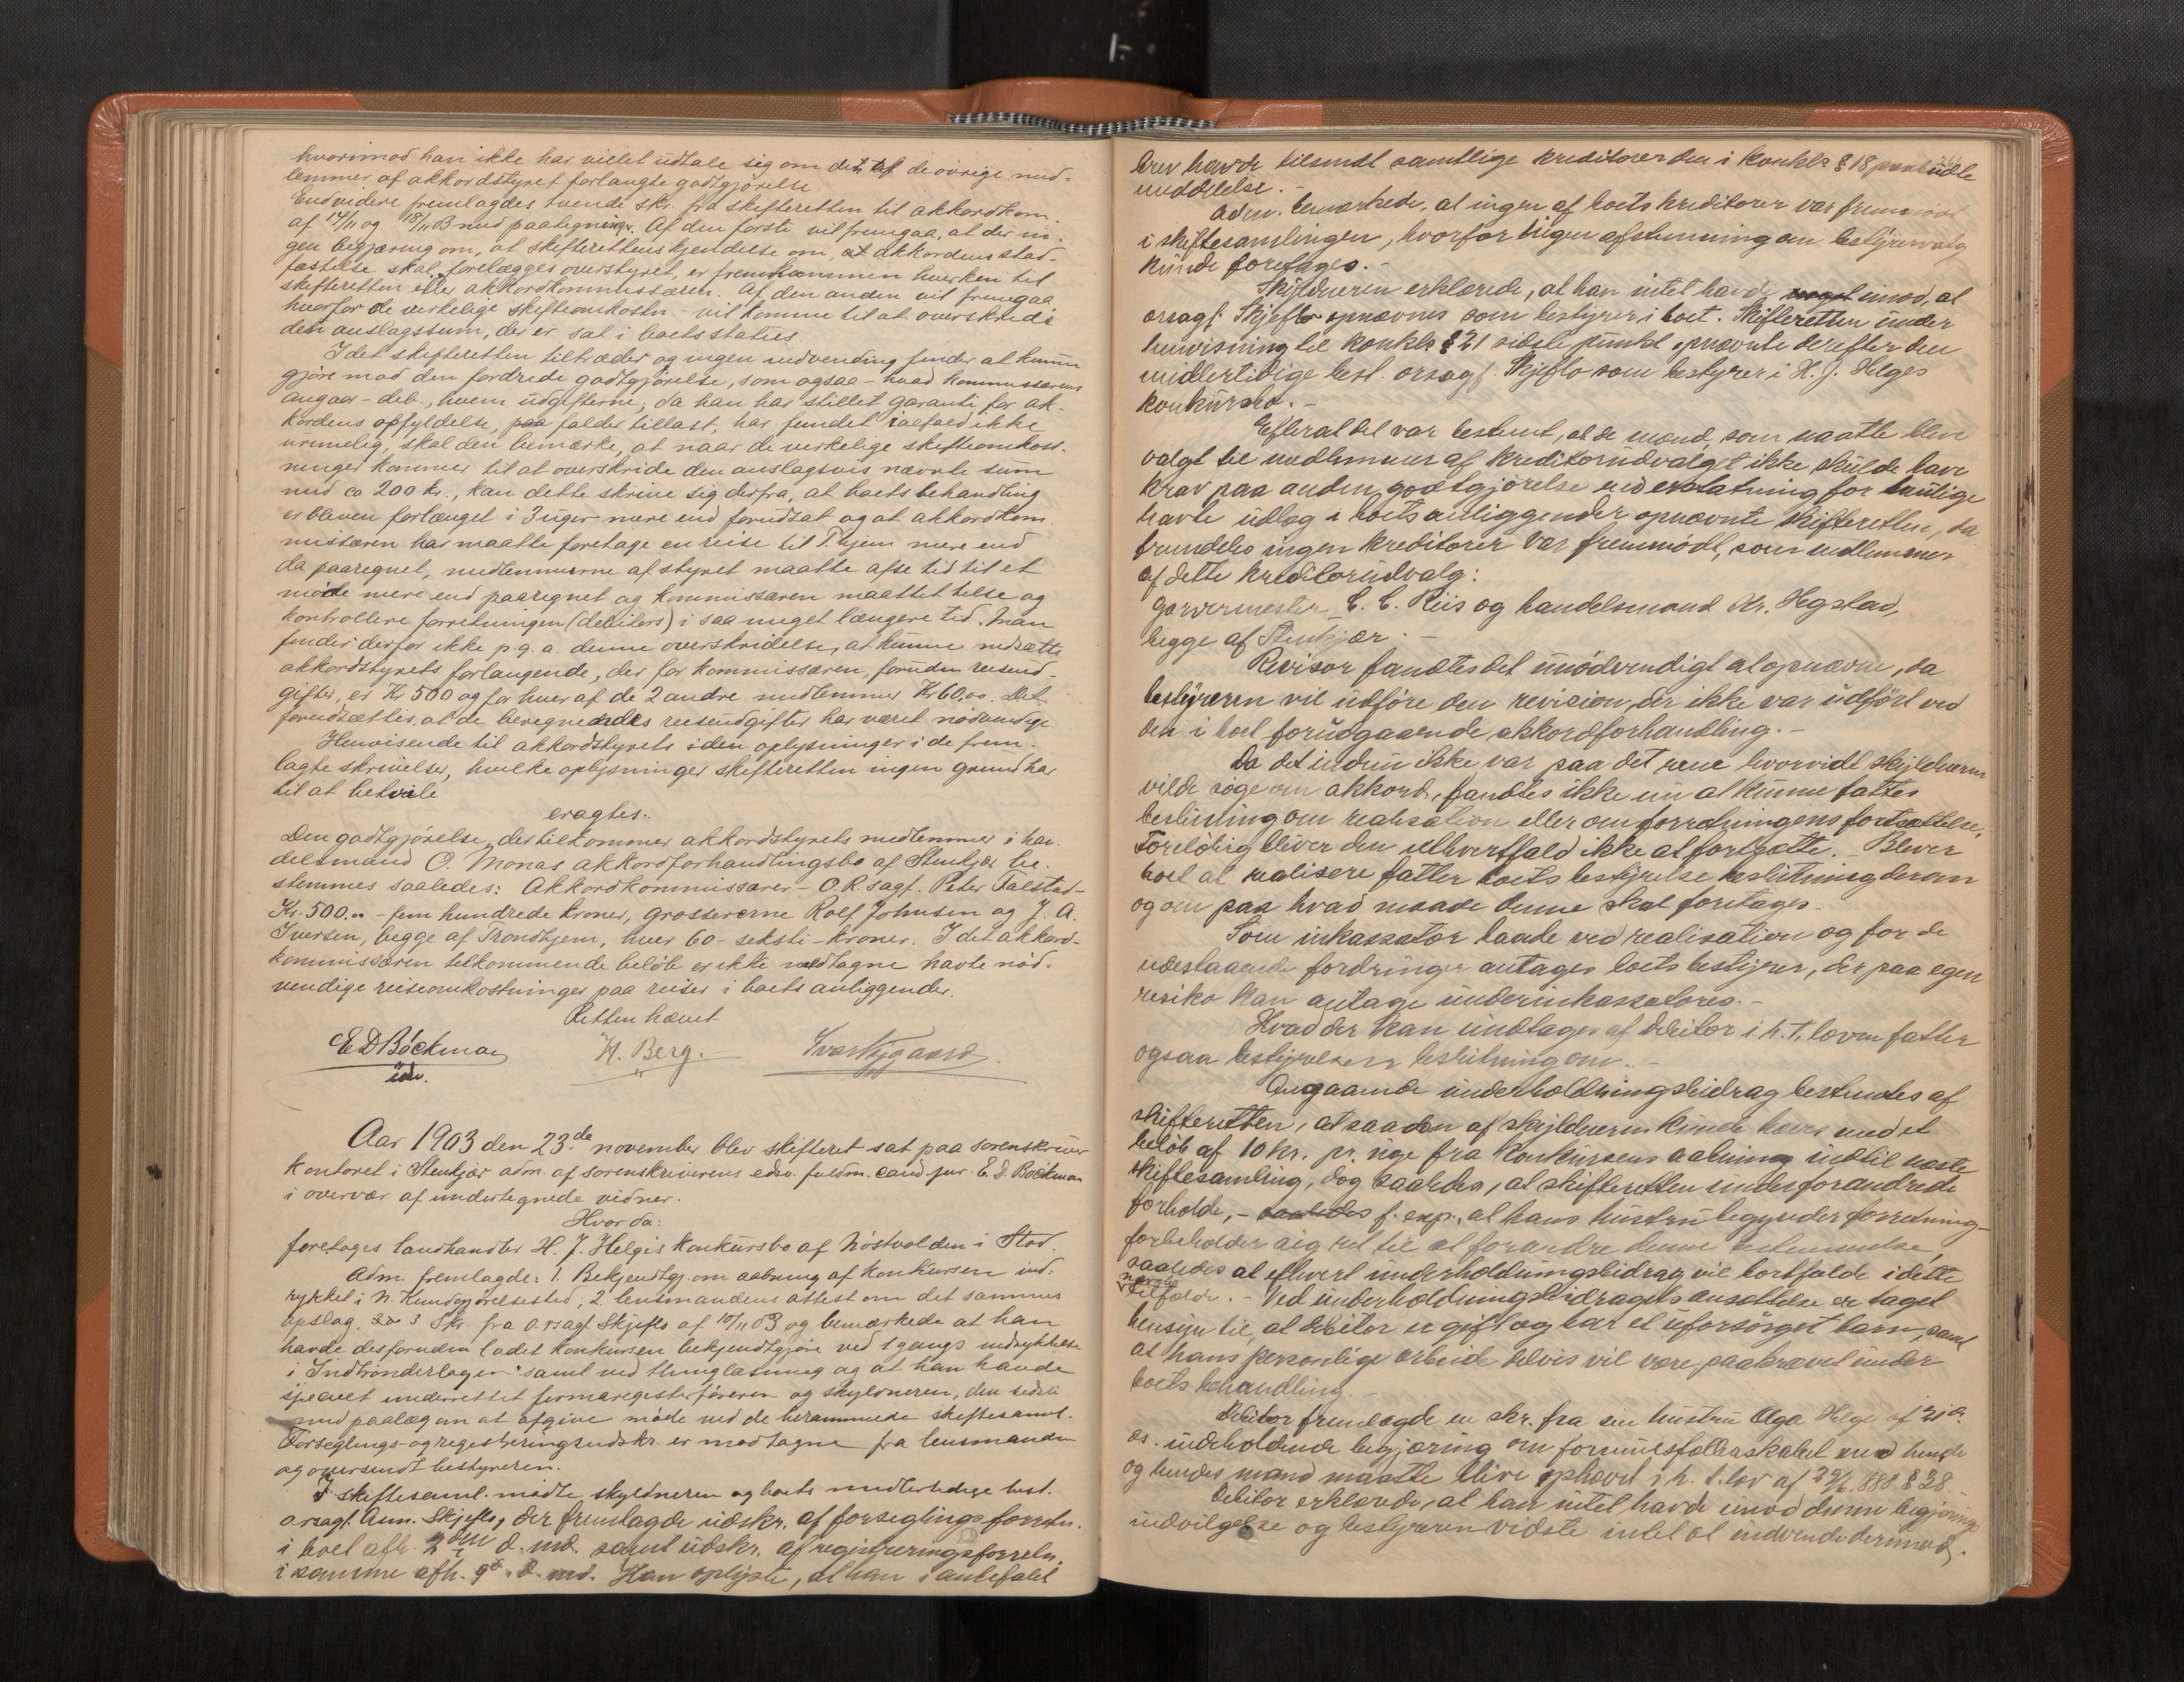 hvorimod han ikke har villet udtale sig om det af de øvrige med-
lemmer af akkordstyret forlangte godtgjørelse.
Endvidere fremlagdes tvende skr. fra skifteretten til akkordkom.
af 14/11 og 18/11 03 med paategninger. Af den første vil fremgaa, at der in-
gen begjæring om, at skifterettens kjendelse om, at akkordens stad-
fæstelse skal forelægges overstyret, er fremkommen hverken til
skifteretten eller akkordkommissæren. Af den anden vil fremgaa
hvorfor de virkelige skifteomkostn. vil komme til at overskride
den anslagssum, der er sat i boets status.
Idet skifteretten tiltræder og ingen indvending finder at kunne
gjøre mod den fordrede godtgjørelse, som ogsaa - hvad kommissærens
angaar - deb., hvem udgifterne, da han har stillet garanti for ak-
kordens opfyldelse, paa falder tillast, har fundet ialfald ikke
urimelig, skal den bemærke, at naar de virkelige skifteomkost-
ninger kommer til at overskride den anslagsvis nævnte sum
med ca 200 kr., kan dette skrive sig derfra, at boets behandling
er bleven forlænget i 3 uger mere end forudsat og at akkordkom-
missæren har maatte foretage en reise til T.hjem mere end
da paaregnet, medlemmerne af styret maatte afse tid til et
møde mere end paaregnet og kommissæren maattet tilse og
kontrollere forretningen (debitors) i saa meget længere tid. Man
finder derfor ikke p. g. a. denne overskridelse, at kunne nedsætte
akkordstyrets forlangende, der for kommissæren, foruden reiseud-
gifter, er Kr 500 og for hver af de 2 andre medlemmer Kr 60,00. Det
forudsættes, at de beregnede reiseudgifter har været nødvendige
Henvisende til akkordstyrets iden oplysninger i de frem-
lagte skrivelser, hvilke oplysninger skifteretten ingen grund har
til at betvile
eragtes:
Den godtgjørelse, der tilkommer akkordstyrets medlemmer i han-
delsmand O. Monas akkordforhandlingsbo af Stenkjær be-
stemmes saaledes: Akkordkommissærer - O.R.sagf. Peter Falstad -
Kr. 500.00 - fem hundrede kroner, grossererne Rolf Johnsen og J. A.
Iversen, begge af Trondhjem, hver 60 - seksti - kroner. I det akkord-
kommissæren tilkommende beløb er ikke medtagne havte nød-
vendige reiseomkostninger paa reiser i boets anliggender.
Retten hævet
E D Böckman H. Berg. Ivar Nygaard.
edv.
Aar 1903 den 23de november blev skifteret sat paa sorenskriver
kontoret i Stenkjær adm. af sorenskriverens edsv. fuldm. cand jur. E. D. Böckman
i overvær af undertegnede vidner.
Hvor da:
foretoges landhandler H. J. Helges konkursbo af Nøstvolden i Stod.
Adm. fremlagde: 1. Bekjendtgj. om aabning af konkursen ind-
rykket i N. Kundgjørelsestid.; 2. lensmandens attest om det sammes
opslag. 3 Skr. fra o.rsagf Skjeflo af 10/11 03 og bemærkede at han
havde desforuden ladet konkursen bekjendtgjøre ved 1 gangs indrykkelse
i "Indtrønderlagen" samt ved thinglæsning og at han havde
specielt underrettet firmaregisterføreren og skyldneren, den sidste
med paalæg om at afgive møde ved de berammede skiftesaml.
Forseglings- og registreringsudskr. er modtagne fra lensmanden
og oversendt bestyreren.
I skiftesaml. mødte skyldneren og boets midlertidige best.
o.rsagf. Aun. Skjeflo, der fremlagde udskr. af forseglingsforretn.
i boet afh. 2den d. md. samt udskr. af registreringsforretn.
i samme afh. 9de d. md. Han oplyste, at han i anbefalet
brev havde tilsendt samtlige kreditorer den i konkl. § 18 paabudte
meddelelse. -
Adm. bemærkede, at ingen af boets kreditorer var fremmødt
i skiftesamlingen, hvorfor ingen afstemning om bestyrervalg
kunde foretages. -
Skyldneren erklærede, at han intet havde imod, at
orsagf. Skjeflo opnævnes som bestyrer i boet. Skifteretten under
henvisning til konkl. § 21 sidste punkt opnævnte derefter den
midlertidige best. orsagf. Skjeflo som bestyrer i H. J. Helges
konkursbo. -
Efterat det var bestemt, at de mænd, som maatte blive
valgt til medlemmer af kreditorudvalget ikke skulde have
krav paa anden godtgjørelse end erstatning for mulige
havte udlæg i boets anliggender opnævnte skifteretten, da
fremdeles ingen kreditorer var fremmødt, som medlemmer
af dette kreditorudvalg:
Garvermester C. C. Riis og handelsmand Kr. Hegstad,
begge af Stenkjær. -
Revisor fandtes det unødvendigt at opnævne, da
bestyreren vil udføre den revision, der ikke var udført ved
den i boet forudgaaende akkordforhandling. -
Da det endnu ikke var paa det rene hvorvidt skyldneren
vilde søge om akkord, fandtes ikke nu at kunne fattes
beslutning om realisation eller om forretningens fortsættelse.
Foreløbig bliver den ialhvertfald ikke at fortsætte. - Bliver
boet at realisere fatter boets bestyrelse beslutning derom
og om paa hvad maade denne skal foretages.
Som inkassator baade ved realisation og for de
udestaaende fordringer antages boets bestyrer, der paa egen
risiko kan antage underinkassatores. -
Hvad der kan undtages af debitor i h. t. loven fatter
ogsaa bestyrelsen beslutning om. -
Angaaende underholdningsbidrag bestemtes af
skifteretten, at saadan af skyldneren kunde hæves med et
beløb af 10 kr. pr. uge fra konkursens aabning indtil næste
skiftesamling, dog saaledes, at skifteretten under forandrede
forholde, - saaledes f. exp., at hans hustru begynder forretning -
forbeholder sig ret til at forandre denne bestemmelse,
saaledes at ethvert underholdningsbidrag vil bortfalde i dette
nævnte
tilfælde. - Ved underholdningsbidragets ansættelse er taget
hensyn til, at debitor er gift og har et uforsørget barn, samt
at hans personlige arbeide delvis vil være paakrævet under
boets behandling. -
Debitor fremlagde en skr. fra sin hustru Olga Helge af 21 ds.
ds. indeholdende begjæring om formuesfællesskabet med hende
og hendes mand maatte blive ophævet i h. t. lov af 29/6 1888 § 38. -
Debitor erklærede, at han intet havde imod denne begjærings
indvilgelse og bestyreren vidste intet at indvende derimod.